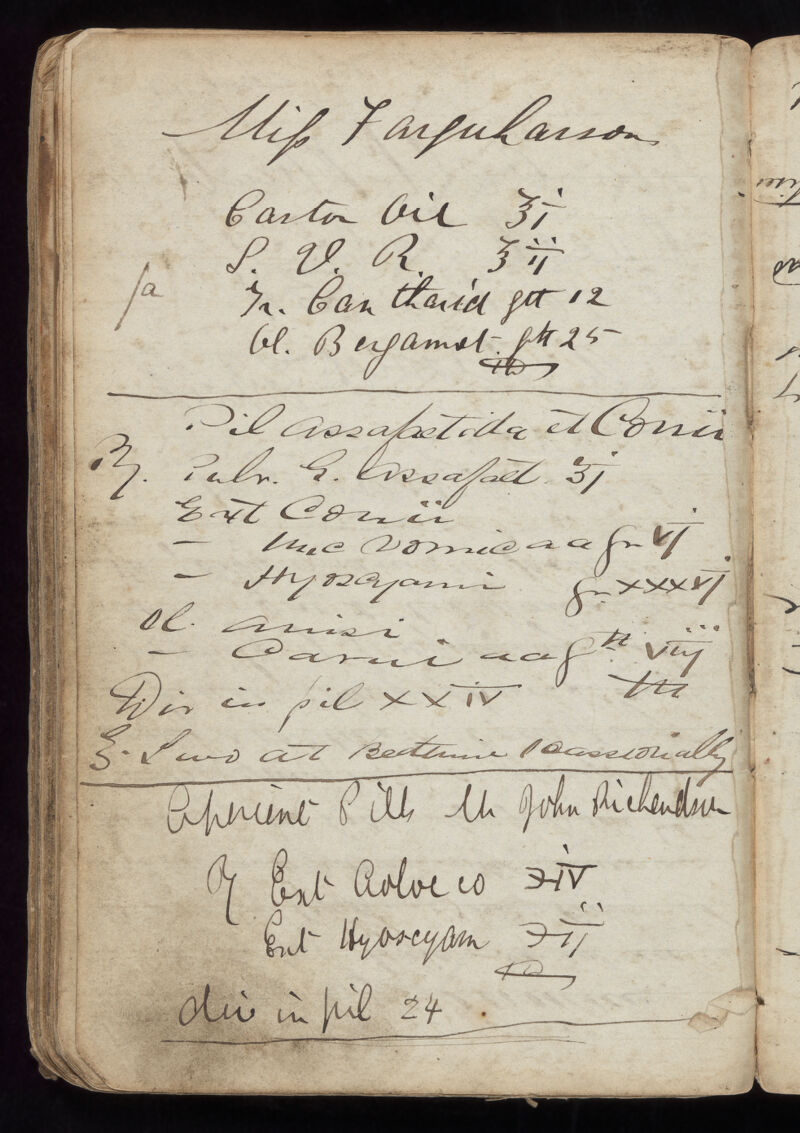 Miss Farquharson
Castor Oil ʒi
S. V. R. ʒii
fa Tr. Cantharid gtt 12
Ol. Bergamot. gtt 25
Pil Assafoetida et Conii
℞. Pulv. G. Assafoet. ʒi
Ext Conii
— Nuc Vomic a a gr vj
— Hyoscyami gr xxxvj
Ol. Anisi
— Carui aa gtt. viij
Div in pil XXIV
Two at Bedtime Occassionally
Aperient Pills Mr John Richardson
℞ Ext Coloc co ℈iv
Ext Hyoscyam ℈ii
div in pil 24